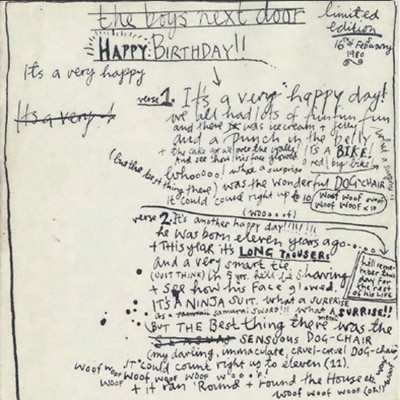 the boys next door
limited edition
16th February 1980
HAPPY BIRTHDAY!!
It's a very happy
It's a very
verse 1. It's a very happy day!
we all had lots of fun fun fun
and there was icecream + jelly
and a punch in the belly
IT'S A BIKE!
And see how his face glowed a red bike
Whooooo! what a surprise
(but the best thing there) was the wonderful DOG-CHAIR
It could count right up to 10
woof woof woof
woof woof x 10
(WOOOOf)
verse 2. It's another happy day!!!!!!!
he was born eleven years ago.....
+ this year it's LONG TROUSERS
and a very smart tie.
(JUST THINK) in 5 yrs. he'll be shaving
+ see how his face glowed.
I'll remember this day for the rest of his life
IT'S A NINJA SUIT. What a SURPRISE
samurai sword!!! what a SURPRISE!!
BUT THE BEST thing there was the
SENSUOUS DOG-CHAIR
(my darling, immaculate, cruel-cruel DOG-chair
IT could count right up to eleven (11).
woof woof woof woof woof woof woooof!
+ it ran 'Round + round the House
woof woof woof woof (oh!)